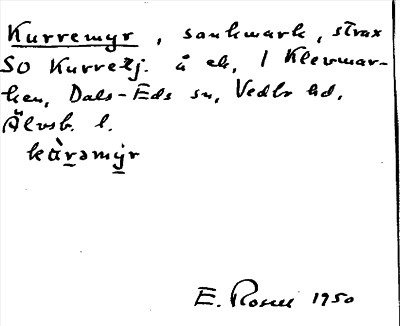 Kurremyr, sankmark, strax
SO Kurretj. å ek, 1 Klevmar-
ken, Dals-Eds sn, Vedbo hd,
Älvsb. l.
kùrəmyr
E. Rosell 1950